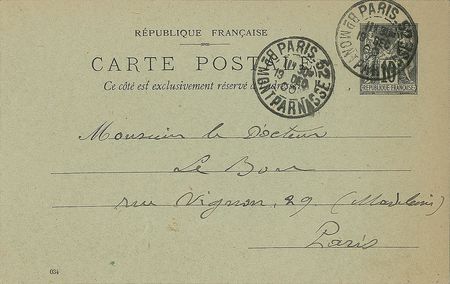 RÉPUBLIQUE FRANÇAISE
CARTE POSTALE
Ce côté est exclusivement réservé à
PARIS 52
19 DEC
Bd MONTPARNASSE
PARIS 52
Bd MONTPARNASSE
10
REPUBLIQUE FRANÇAISE
Monsieur le Docteur
Le Bon
rue Vignon, 29 (Madeleine)
Paris
034